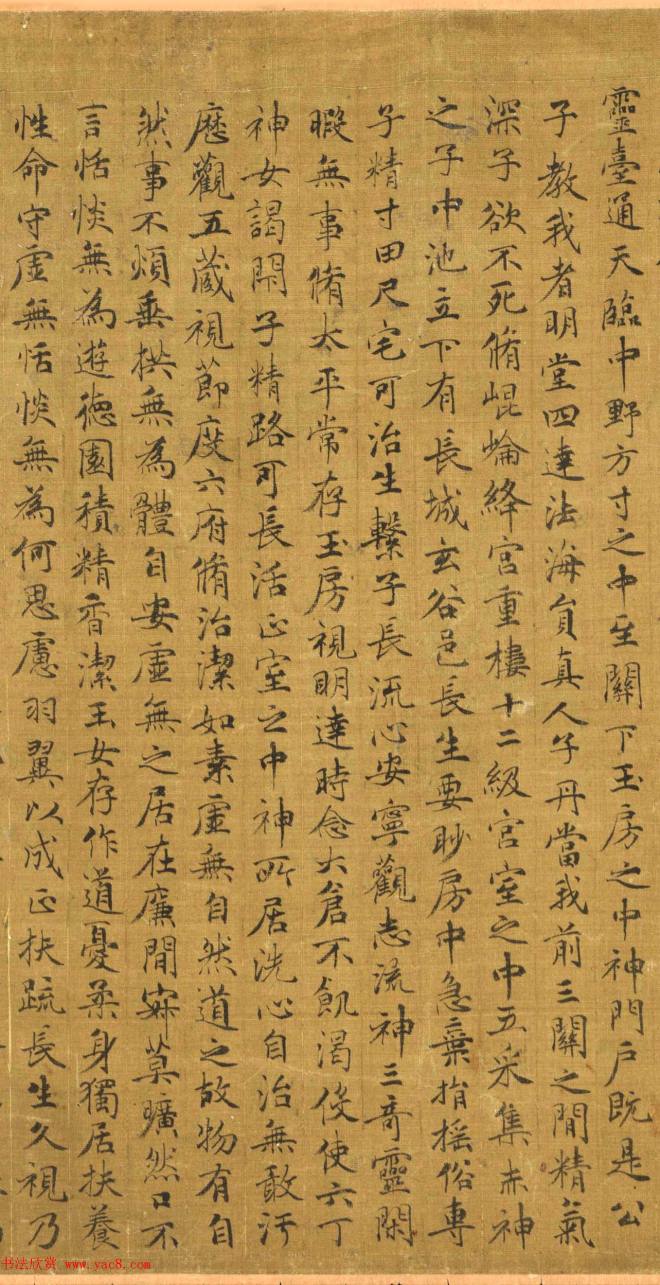 靈臺通天臨中野方寸之中至關下玉房之中神門戶既是公
子教我者明堂四達法海負真人子丹當我前三關之閒精氣
深子欲不死脩崐崘絳宮重樓十二級宮室之中五采集赤神
之子中池立下有長城玄谷邑長生要眇房中急棄捐搖俗專
子精寸田尺宅可治生繫子長流心安寧觀志流神三奇靈閑
暇無事脩太平常存玉房視明達時念大倉不飢渴役使六丁
神女謁閇子精路可長活正室之中神所居洗心自治無敢汙
歷觀五藏視節度六府脩治潔如素虛無自然道之故物有自
然事不煩垂拱無為體自安虛無之居在廉閒寂莫曠然口不
言恬惔無為遊德園積精香潔玉女存作道憂柔身獨居扶養
性命守虛無恬惔無為何思慮羽翼以成正扶疏長生久視乃
书法欣赏 www.yac8.com